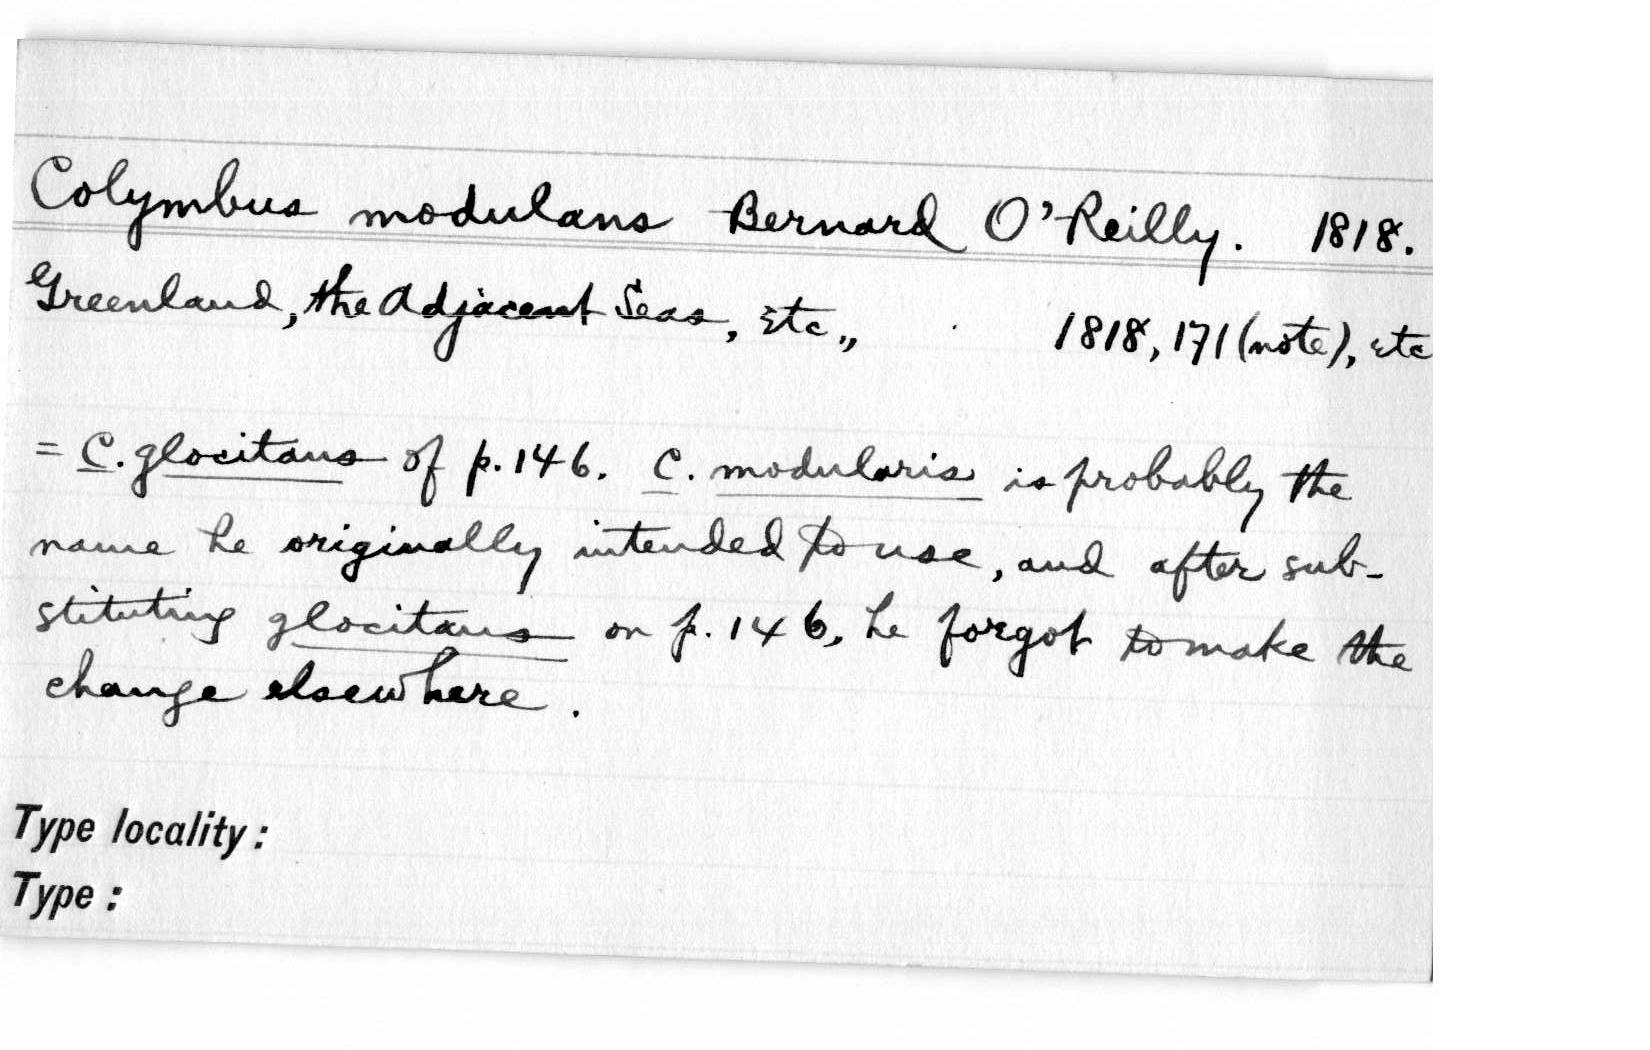 Colymbus modulans Bernard O'Reilly. 1818.
Greenland, the Adjacent Seas, etc., 1818, 171 (note), etc
= C. glocitans of p. 146. C. modularis is probably the
name he originally intended to use, and after sub-
stituting glocitans on p. 146, he forgot to make the
change elsewhere.
Type locality:
Type: